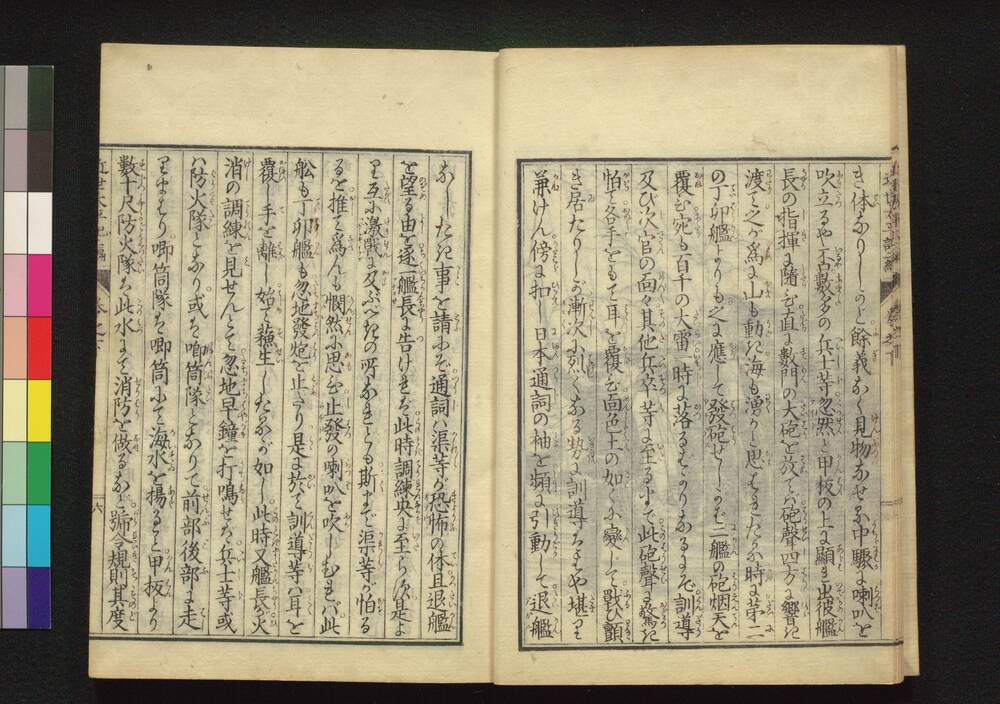 き体なりしかど餘義なく見物なせる中驟に喇叭を
吹立るや否數多の兵士等忽然と甲板の上に顯れ出彼艦
長の指揮に隨ひ直に數門の大砲を放てバ砲聲四方に響き
渡て之が爲に山も動き海も湧かと思はれたる時に第二
の丁卯艦よりも之に應じて發砲せしかば二艦の砲烟天を
覆ひ宛も百千の大雷一時に落るばかりなるにぞ訓導
及び次官の面々其他兵卒等に至るまで此砲聲に驚き
怕て各手をもて耳を覆ひ面色土の如くに變じて戰ひ顫
き居たりしが漸次に烈くなる勢に訓導ハもはや堪り
兼けん傍に扣し日本通詞の袖を頻に引動して退艦
なしたき事を請にぞ通詞ハ渠等が恐怖の体且退艦
を望る由を逐一艦長に告けれど此時調練央に至らず是よ
り互に激戰に及ぶべきの所なれども斯まで渠等が怕る
るを推て爲んも憫然に思ひ止發の喇叭を吹しむれバ此
舩も丁卯艦も忽地發炮を止たり是に於て訓導等ハ耳を
覆し手を離し始て蘇生したるが如し此時又艦長ハ火
消の調練を見せんとて忽地早鐘を打鳴せバ兵士等或
ハ防火隊となり或ハ喞筒隊となりて前部後部に走
りまはり喞筒隊ハ喞筒にて海水を揚ると甲板より
數十尺防火隊ハ此水にて消防を做るなど號令規則其度
近世太平記 編 卷之 六